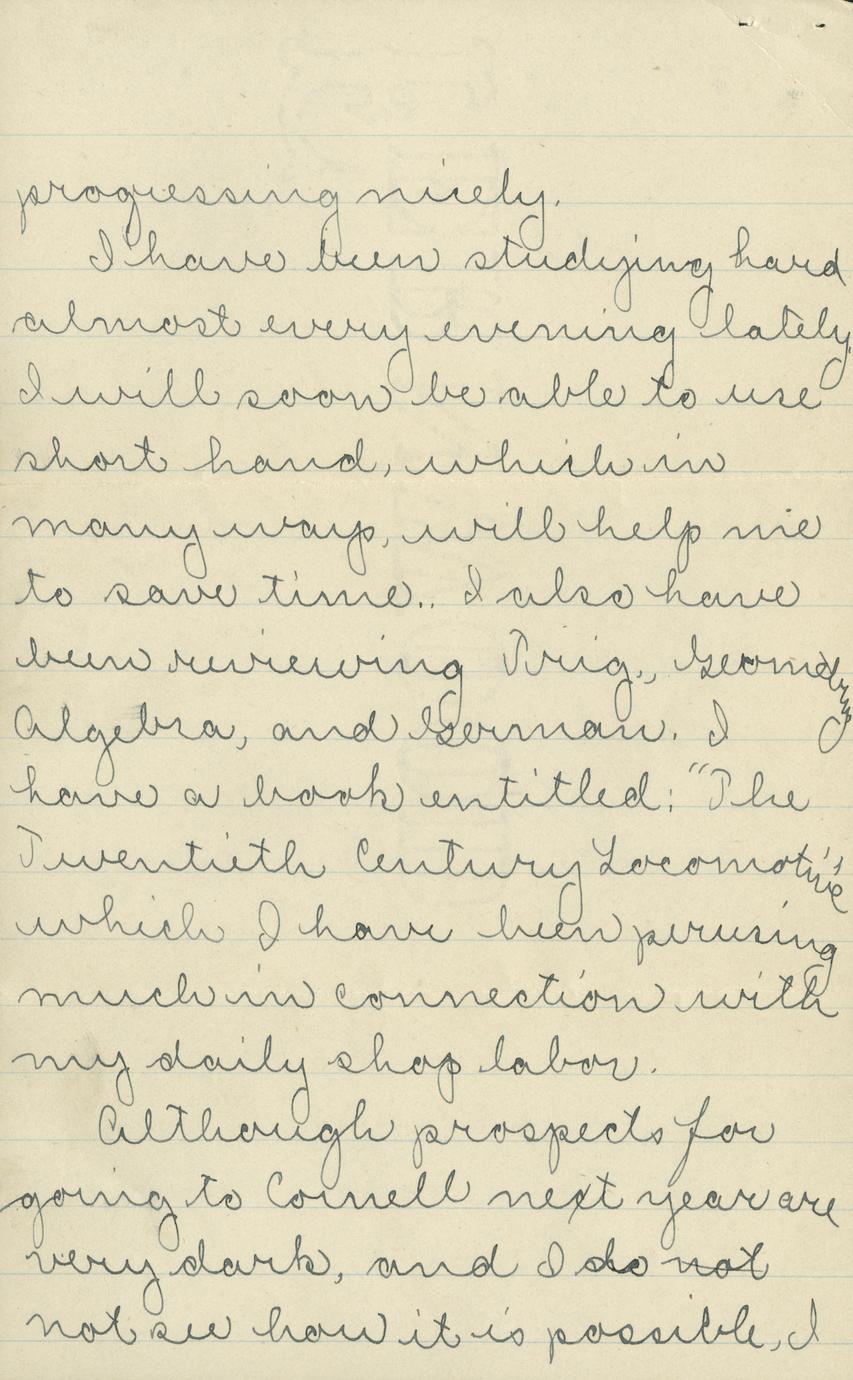 progressing nicely.
I have been studying hard
almost every evening lately.
I will soon be able to use
short hand, which in
many ways, will help me
to save time.. I also have
been reviewing Trig., Geometry
Algebra, and German. I
have a book entitled: "The
Twentieth Century Locomotive"
which I have been perusing
much in connection with
my daily shop labor.
Although prospects for
going to Cornell next year are
very dark, and I do not
not see how it is possible, I